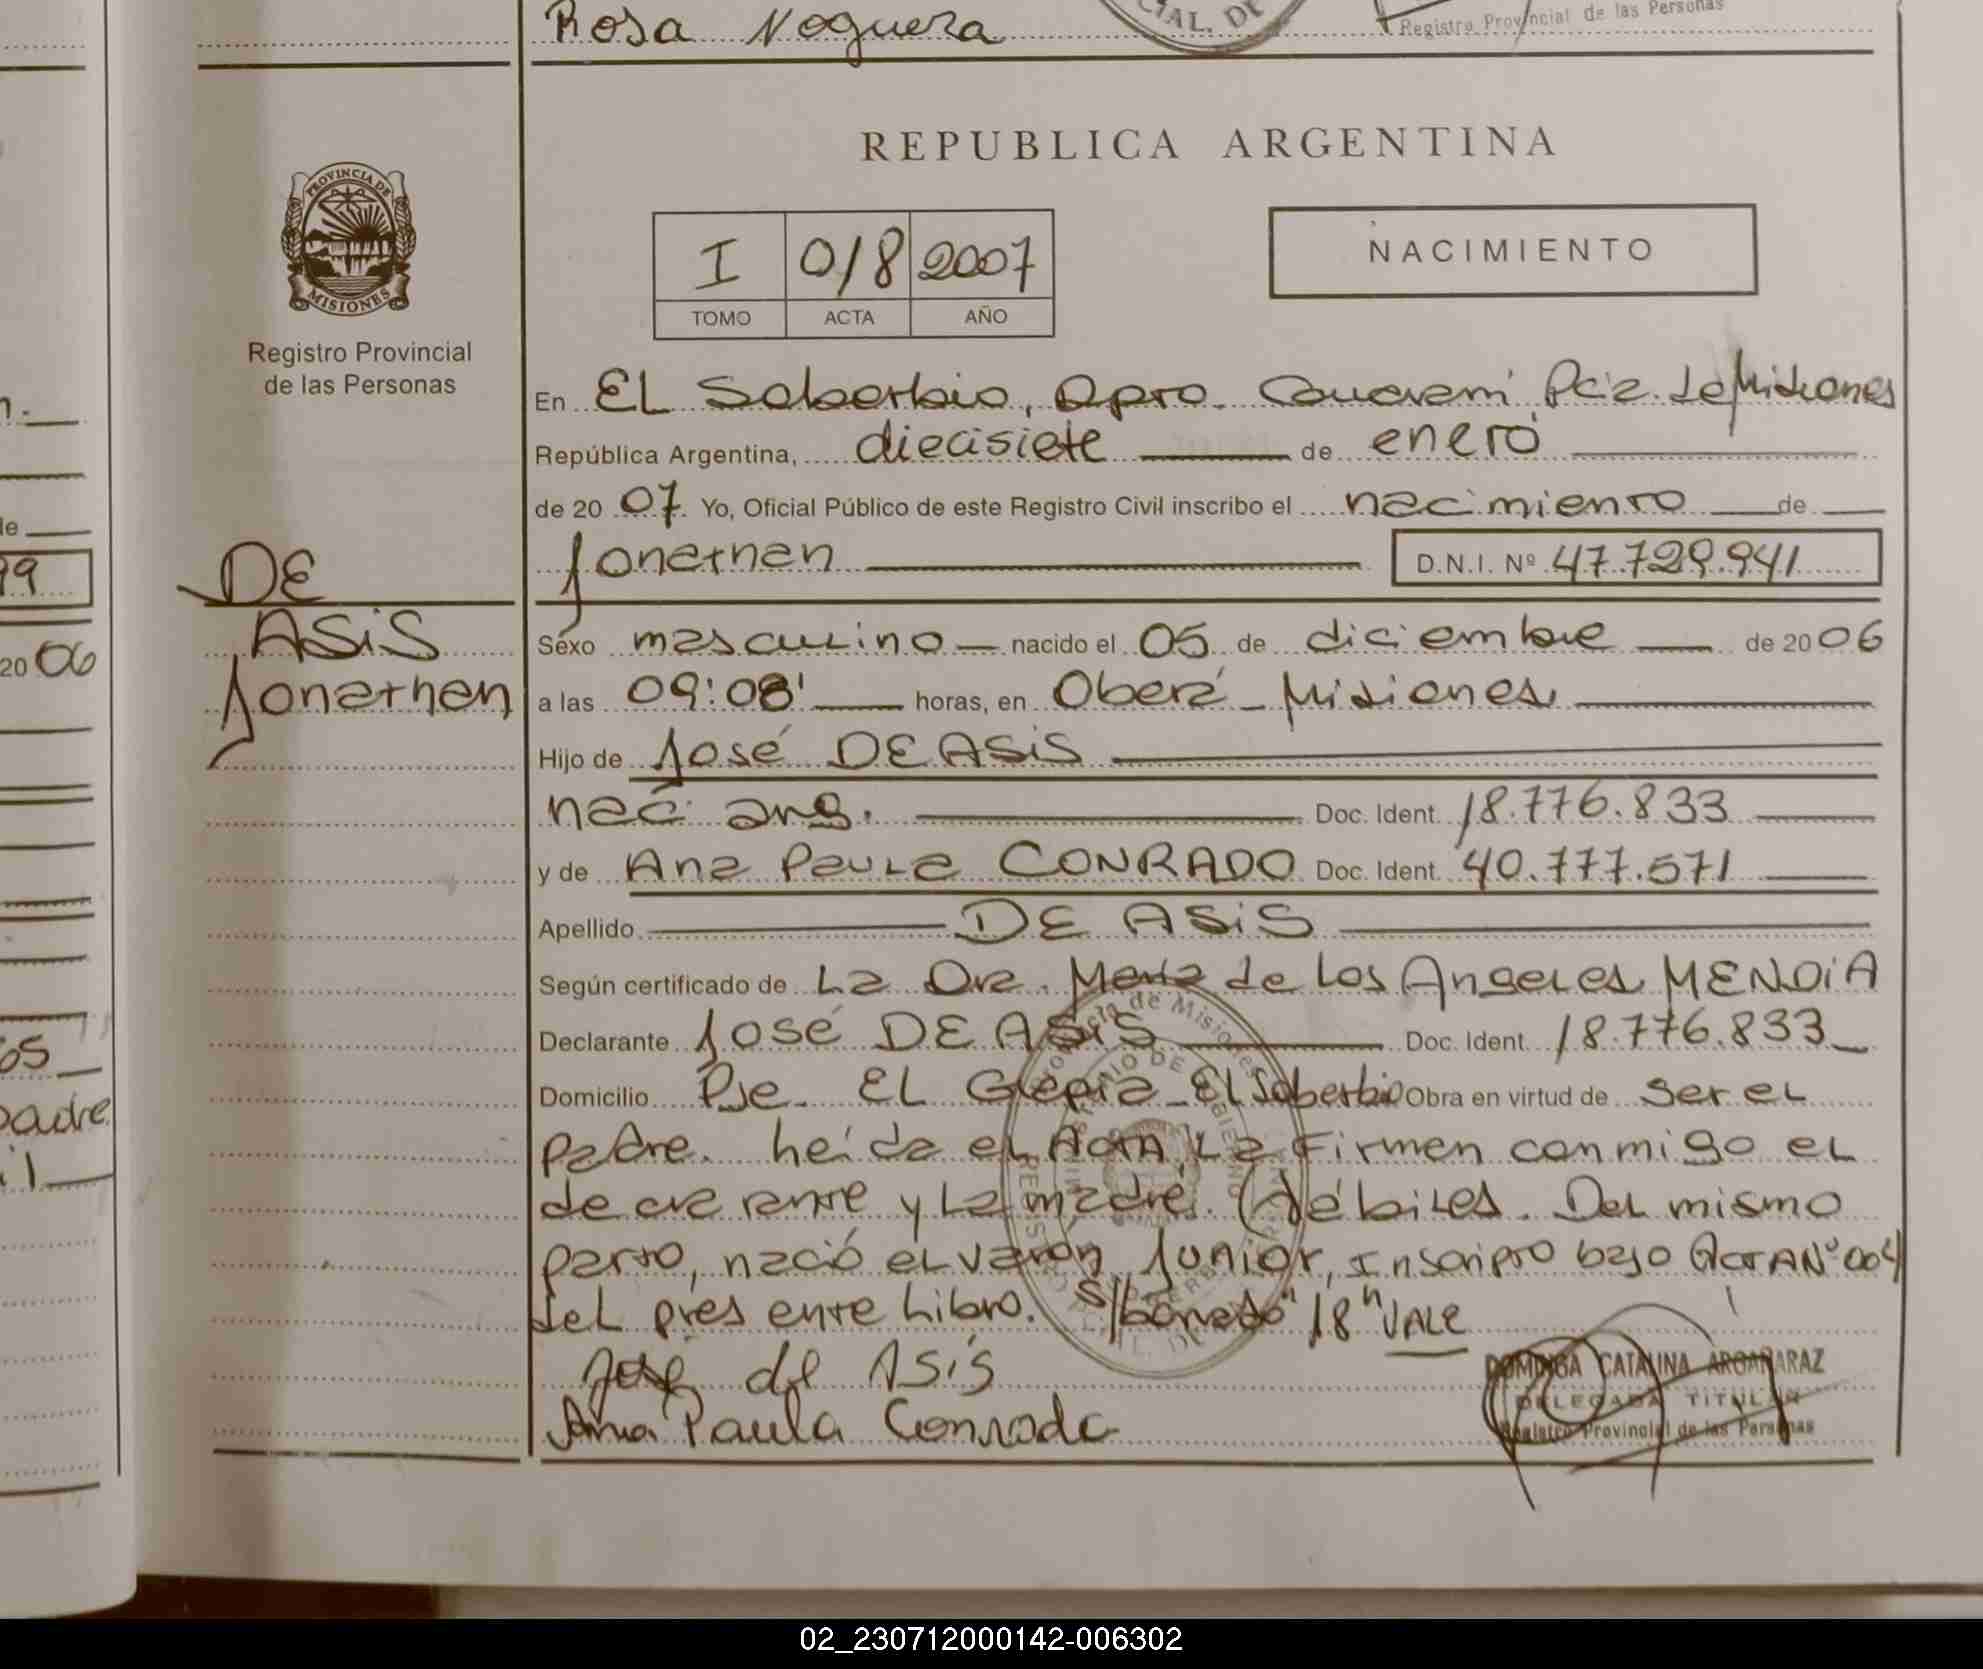 Rosa Noguera
CIAL. DE
Registro Provincial de las Personas
REPUBLICA ARGENTINA
PROVINCIA DE
MISIONES
Registro Provincial
de las Personas
I 018 2007
TOMO ACTA AÑO
NACIMIENTO
En EL Soberbio, Dpto. Guaraní, Pcia. de Misiones
República Argentina, diecisiete de enero
de 20 07 Yo, Oficial Público de este Registro Civil inscribo el nacimiento de
Jonathan D.N.I. Nº 47.729.941
DE
ASiS
Jonathan
Sexo masculino nacido el 05 de diciembre de 20 06
a las 09:08' horas, en Oberá - Misiones
Hijo de José DE ASiS
nac. arg. Doc. Ident. 18.776.833
y de Ana Paula CONRADO Doc. Ident. 40.777.571
Apellido DE ASiS
Según certificado de La Dra. María de Los Angeles MENDiA
Declarante José DE ASiS Doc. Ident. 18.776.833
Domicilio Pje. EL Glepia - El Soberbio Obra en virtud de ser el
padre. Leída el Acta, La Firman conmigo el
declarante y La madre. (débiles. Del mismo
parto, nació el varón Junior, Inscripto bajo Acta Nº 004
del presente Libro. S/borrado "18" VALE
José de ASíS
Ana Paula Conrado
DOMINGA CATALINA ARGAÑARAZ
DELEGADA TITULAR
Registro Provincial de las Personas
99
20 06
05
padre
02_230712000142-006302